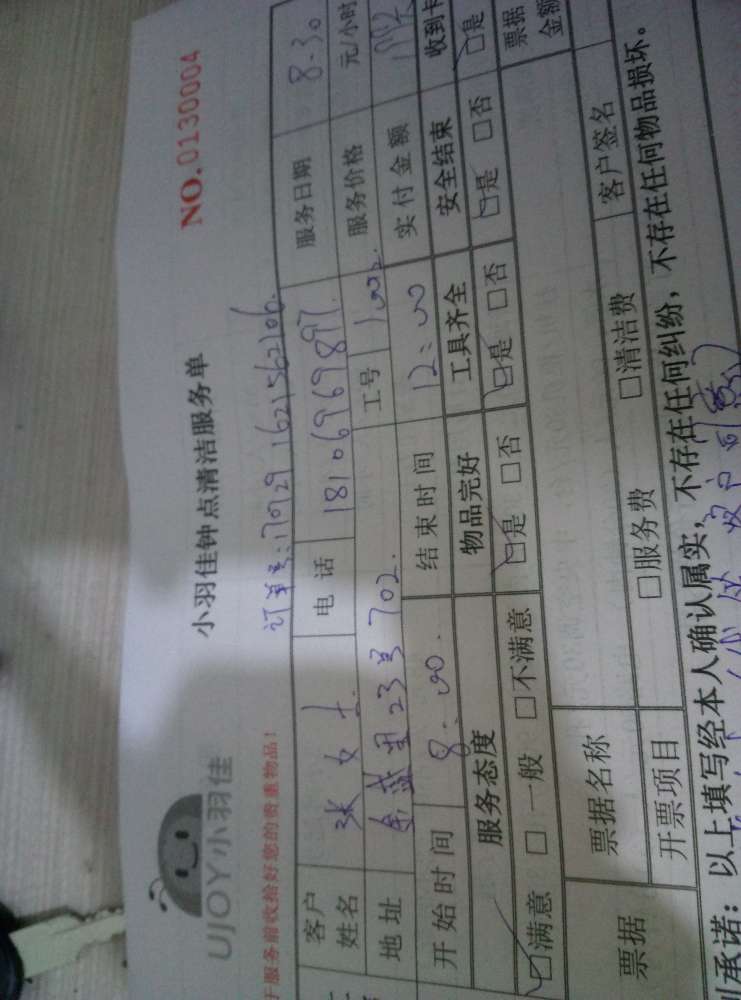 UJOY小羽佳
小羽佳钟点清洁服务单
NO.0130004
于服务前收拾好您的贵重物品!
订单号:1707291621562106.
客户姓名 张女士 电话 18106969897. 服务日期 8.30
地址 23号702. 工号 1002. 服务价格 元/小时
开始时间 8:00. 结束时间 12:00 实付金额
服务态度 物品完好 工具齐全 安全结束 收到卡
☑满意 □一般 □不满意 ☑是 □否 ☑是 □否 ☑是 □否 ☑是
票据 票据名称 票据金额
开票项目 □服务费 □清洁费 客户签名
承诺:以上填写经本人确认属实,不存在任何纠纷,不存在任何物品损坏。